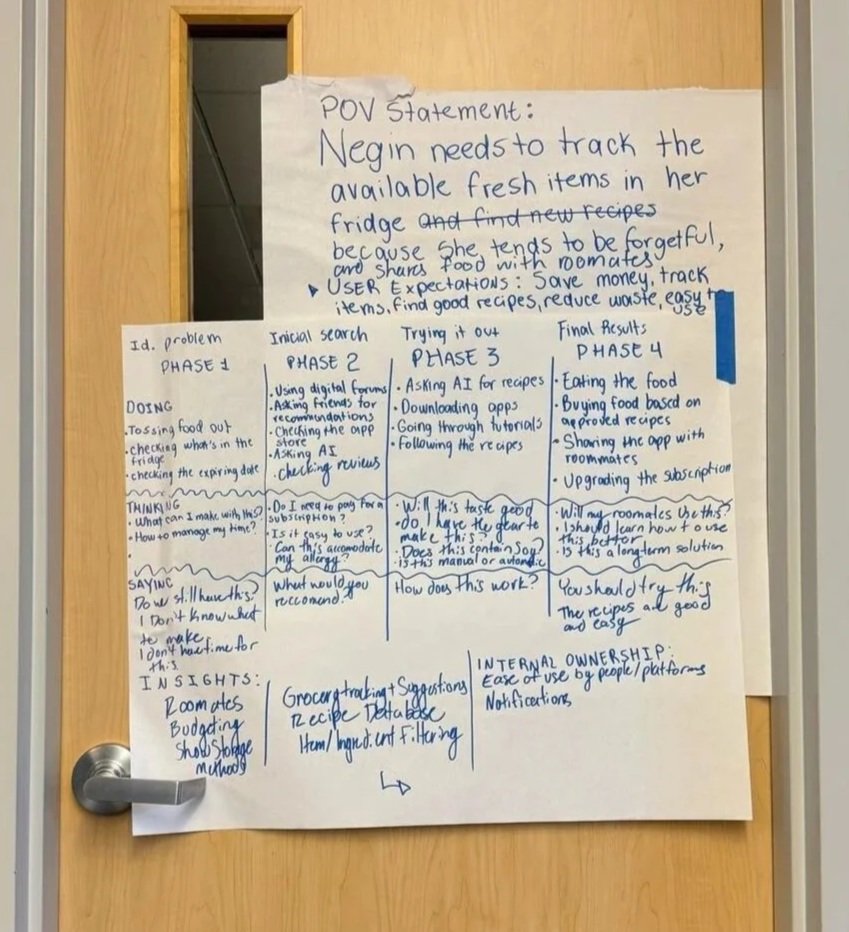 POV Statement:
Negin needs to track the
available fresh items in her
fridge and find new recipes
because she tends to be forgetful,
and shares food with roomates
USER Expectations: Save money, track
items, find good recipes, reduce waste, easy to
use
Id. problem
PHASE 1
Inicial search
PHASE 2
Trying it out
PHASE 3
Final Results
PHASE 4
DOING
• Tossing food out
• checking what's in the
fridge
• checking the expiring date
• Using digital forums
• Asking friends for
recommendations
• Checking the app
store
• Asking AI
• checking reviews
• Asking AI for recipes
• Downloading apps
• Going through tutorials
• Following the recipes
• Eating the food
• Buying food based on
approved recipes
• Sharing the app with
roommates
• Upgrading the subscription
THINKING
• What can I make with this?
• How to manage my time?
• Do I need to pay for a
subscription?
• Is it easy to use?
• Can this accomodate
my allergy?
• Will this taste good
• do I have the gear to
make this?
• Does this contain Soy?
• is this manual or automatic
• Will my roomates use this?
• I should learn how to use
this better
• is this a long term solution
SAYING
Do we still have this?
I Don't Know what
to make
I don't have time for
this.
What would you
reccomend?
How does this work?
You should try this
The recipes are good
and easy
INSIGHTS:
Roomates
Budgeting
Show Storage
Methods
Grocery tracking + Suggestions
Recipe Database
Item/Ingredient Filtering
INTERNAL OWNERSHIP:
Ease of use by people/platforms
Notifications